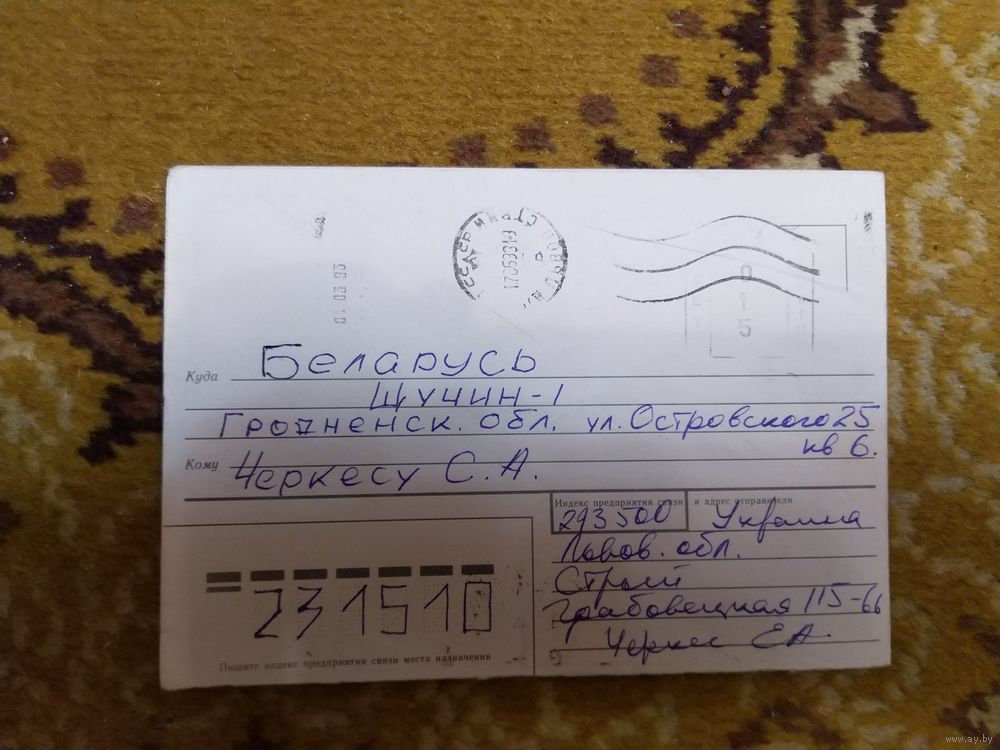 01 03 93
170693 19
Р
15
Куда
Беларусь
Щучин-1
Гродненск. обл. ул. Островского 25
кв 6.
Кому
Черкесу С. А.
Индекс предприятия связи и адрес отправителя
293500 Украина
Львов. обл.
Стрый
Грабовецкая 115-66
Черкес ЕА.
231510
Пишите индекс предприятия связи места назначения
www.ay.by